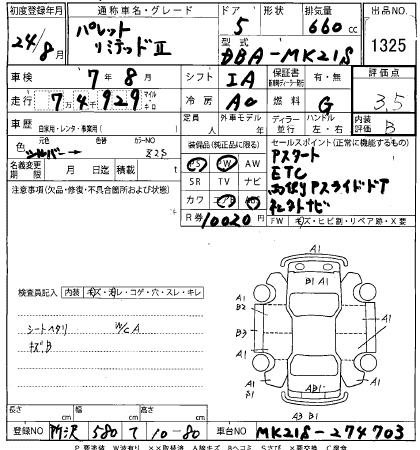 初度登録年月 通称車名・グレード ドア 形状 排気量 出品NO.
24/8月 パレット リミテッドⅡ 5 660cc 1325
型式 DBA-MK21S
車検 7年8月 シフト IA 保証書 有・無 評価点
走行 7万4千929 マイル キロ 冷房 AC 燃料 G 3.5
車歴 自家用・レンタ・事業用( ) 定員 人 外車モデル 年 ディーラー 並行 ハンドル 左・右 内装評価 B
元色 シルバー 色替 カラーNO Z2S
名義変更期限 月 日迄 積載 t
装備品(純正品に限る)
PS PW AW
SR TV ナビ
カワ エアB
R券 10020円
セールスポイント(正常に機能するもの)
Pスタート
ETC
両側Pスライドドア
社外ナビ
FW キズ・ヒビ割・リペア跡・X要
注意事項(欠品・修復・不具合箇所および状態)
検査員記入 内装 キズ・汚レ・コゲ・穴・スレ・キレ
シートヘタリ W/CA
キズB
A1
A1 B2 A1
B3 A1
A1 B1 AB1 A1
A3 B1
長さ cm 幅 cm 高さ cm
登録NO 所沢 580 て 10-80 車台NO MK21S-274703
P要塗装 W波有り ××取替済 A線キズ Bヘコミ Sサビ ×要交換 C腐食